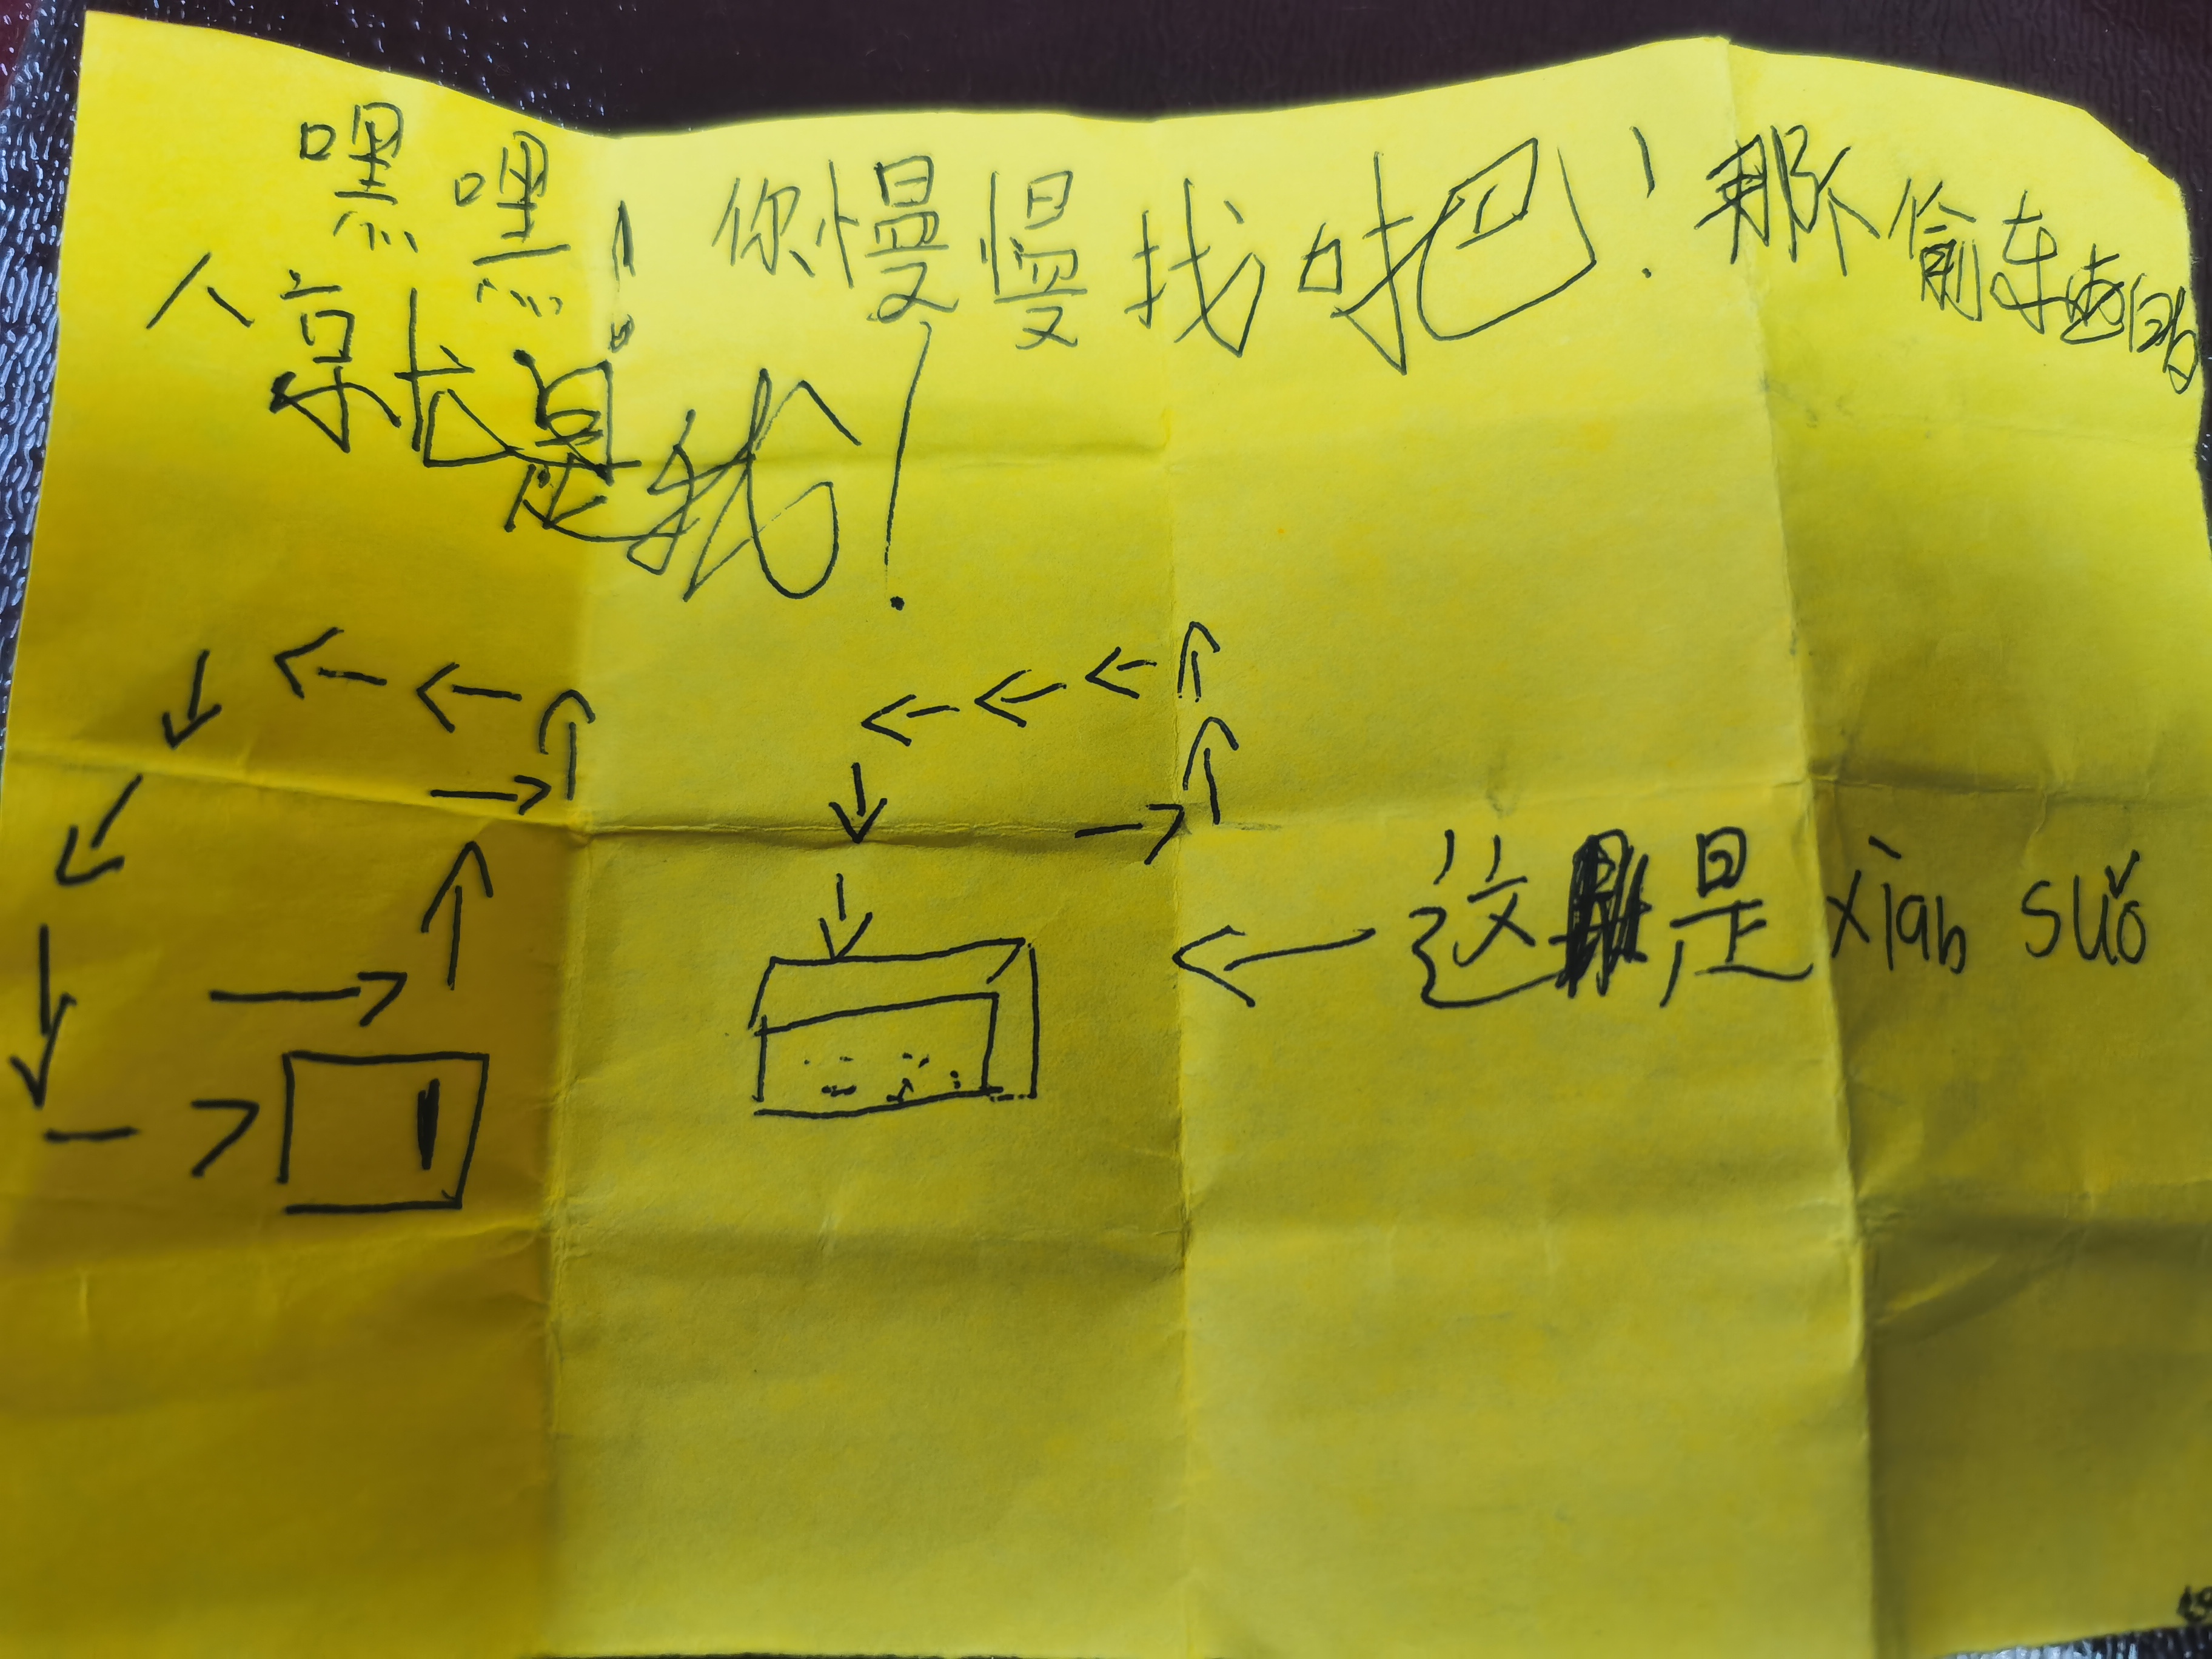 嘿嘿！你慢慢找吧！那个偷东西的
人就是我！
这是xiàn suǒ